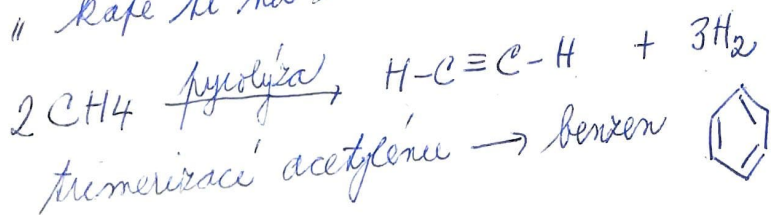 " kape
2 CH4 pyrolýza → H-C≡C-H + 3H2
trimerizací acetylénu → benzen